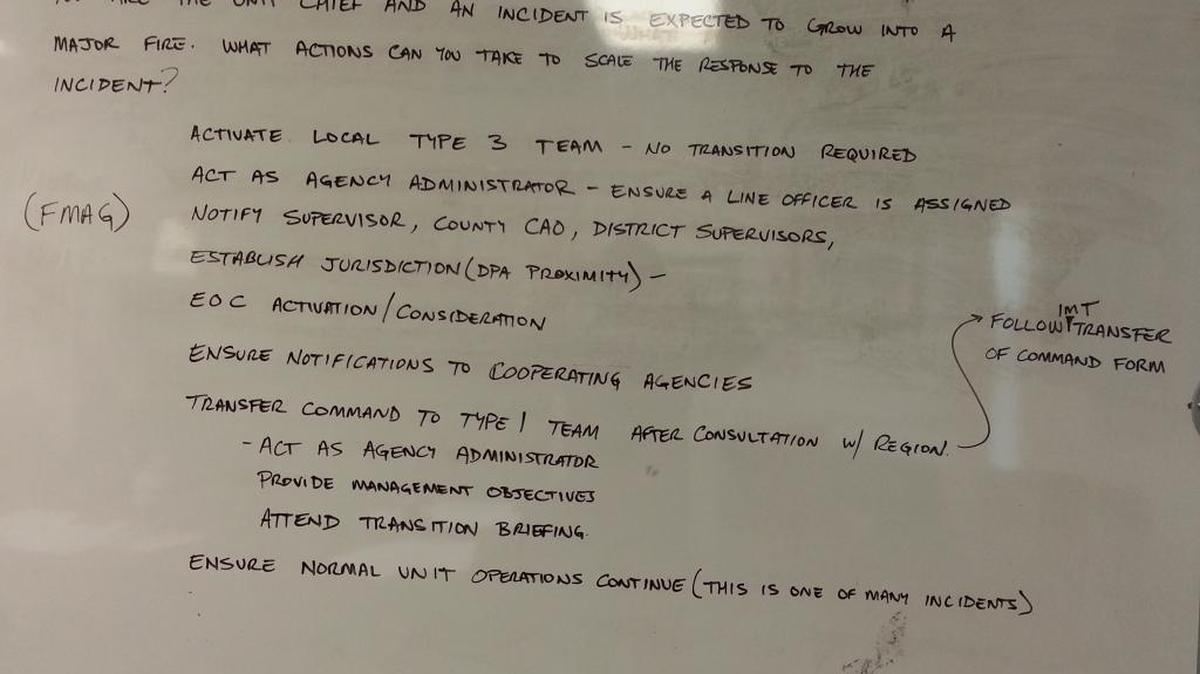 YOU ARE THE UNIT CHIEF AND AN INCIDENT IS EXPECTED TO GROW INTO A
MAJOR FIRE. WHAT ACTIONS CAN YOU TAKE TO SCALE THE RESPONSE TO THE
INCIDENT?
ACTIVATE LOCAL TYPE 3 TEAM - NO TRANSITION REQUIRED
ACT AS AGENCY ADMINISTRATOR - ENSURE A LINE OFFICER IS ASSIGNED
(FMAG)
NOTIFY SUPERVISOR, COUNTY CAO, DISTRICT SUPERVISORS,
ESTABLISH JURISDICTION (DPA PROXIMITY) -
EOC ACTIVATION/CONSIDERATION
ENSURE NOTIFICATIONS TO COOPERATING AGENCIES
TRANSFER COMMAND TO TYPE 1 TEAM AFTER CONSULTATION W/ REGION.
IMT
FOLLOW TRANSFER
OF COMMAND FORM
- ACT AS AGENCY ADMINISTRATOR
PROVIDE MANAGEMENT OBJECTIVES
ATTEND TRANSITION BRIEFING.
ENSURE NORMAL UNIT OPERATIONS CONTINUE (THIS IS ONE OF MANY INCIDENTS)